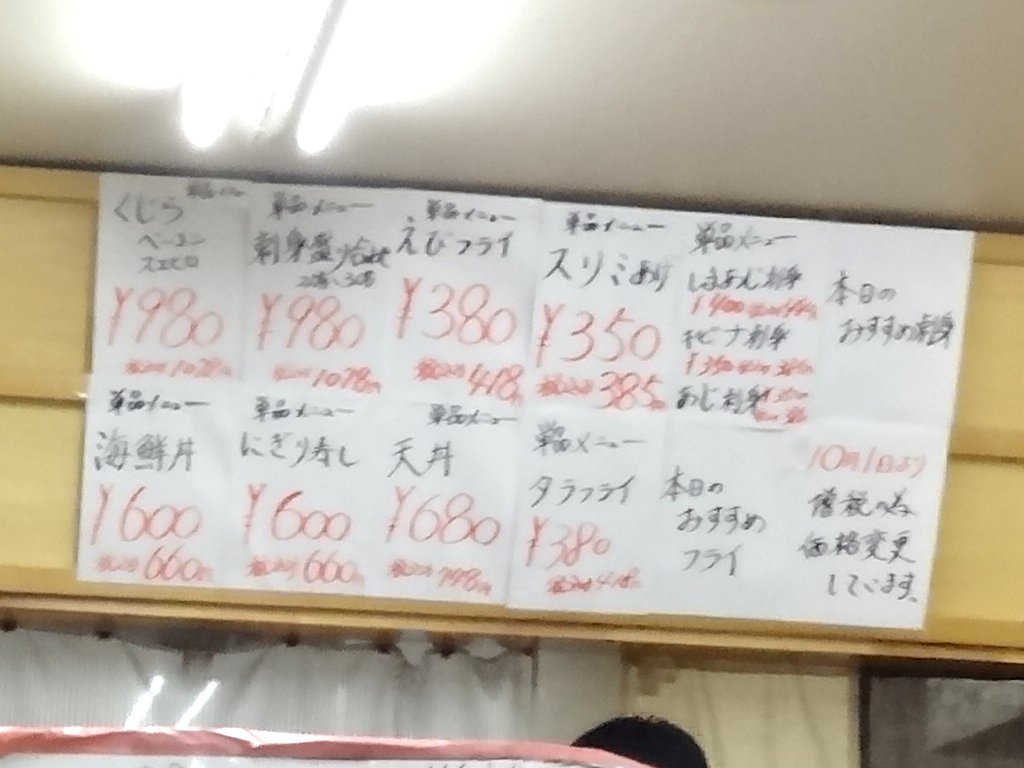 単品メニュー
くじら
ベーコン
¥980
税込み1078円
単品メニュー
刺身盛り合せ
¥980
税込み1078円
単品メニュー
えびフライ
¥380
税込み418円
単品メニュー
スリミあげ
¥350
税込み385円
単品メニュー
しまあじ刺身
¥400
キビナ刺身
¥350
あじ刺身
本日の
おすすめ刺身
単品メニュー
海鮮丼
¥600
税込み660円
単品メニュー
にぎり寿し
¥600
税込み660円
単品メニュー
天丼
¥680
税込み748円
単品メニュー
タラフライ
¥380
税込み418円
本日の
おすすめ
フライ
10月1日より
増税の為
価格変更
しています。